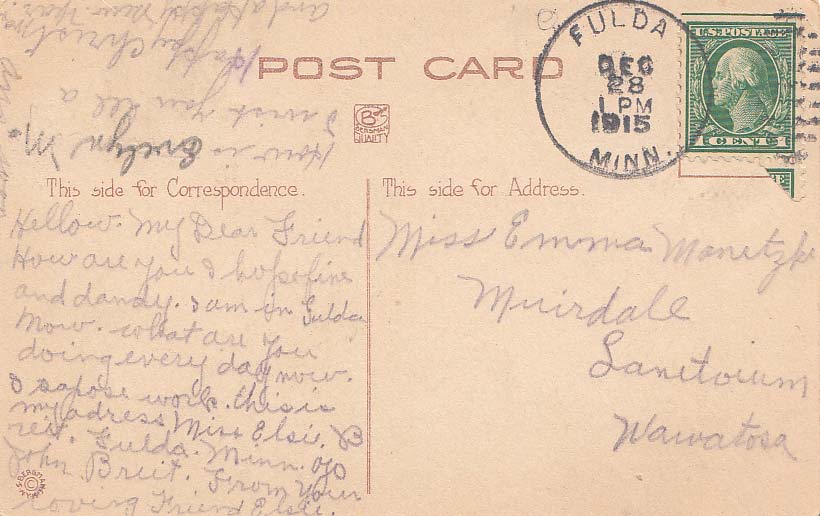 POST CARD
FULDA
DEC
28
1 PM
1915
MINN.
U.S. POSTAGE
1 CENT 1
BS
BERGMAN
QUALITY
and a Happy New Year.
Happy Christmas
I wish you all a
How is
Evelyn M.
This side for Correspondence.
Hellow. My Dear Friend
How are you I hope fine
and dandy. I am in Fulda
now. what are you
doing every day now.
I sapose work. this is
my adress Miss Elsie. B
reit. Fulda. Minn. c/o
John Breit. From Your
loving Friend Elsie.
This side for Address.
Miss Emma Manetzke
Muirdale
Sanitorium
Wawatosa